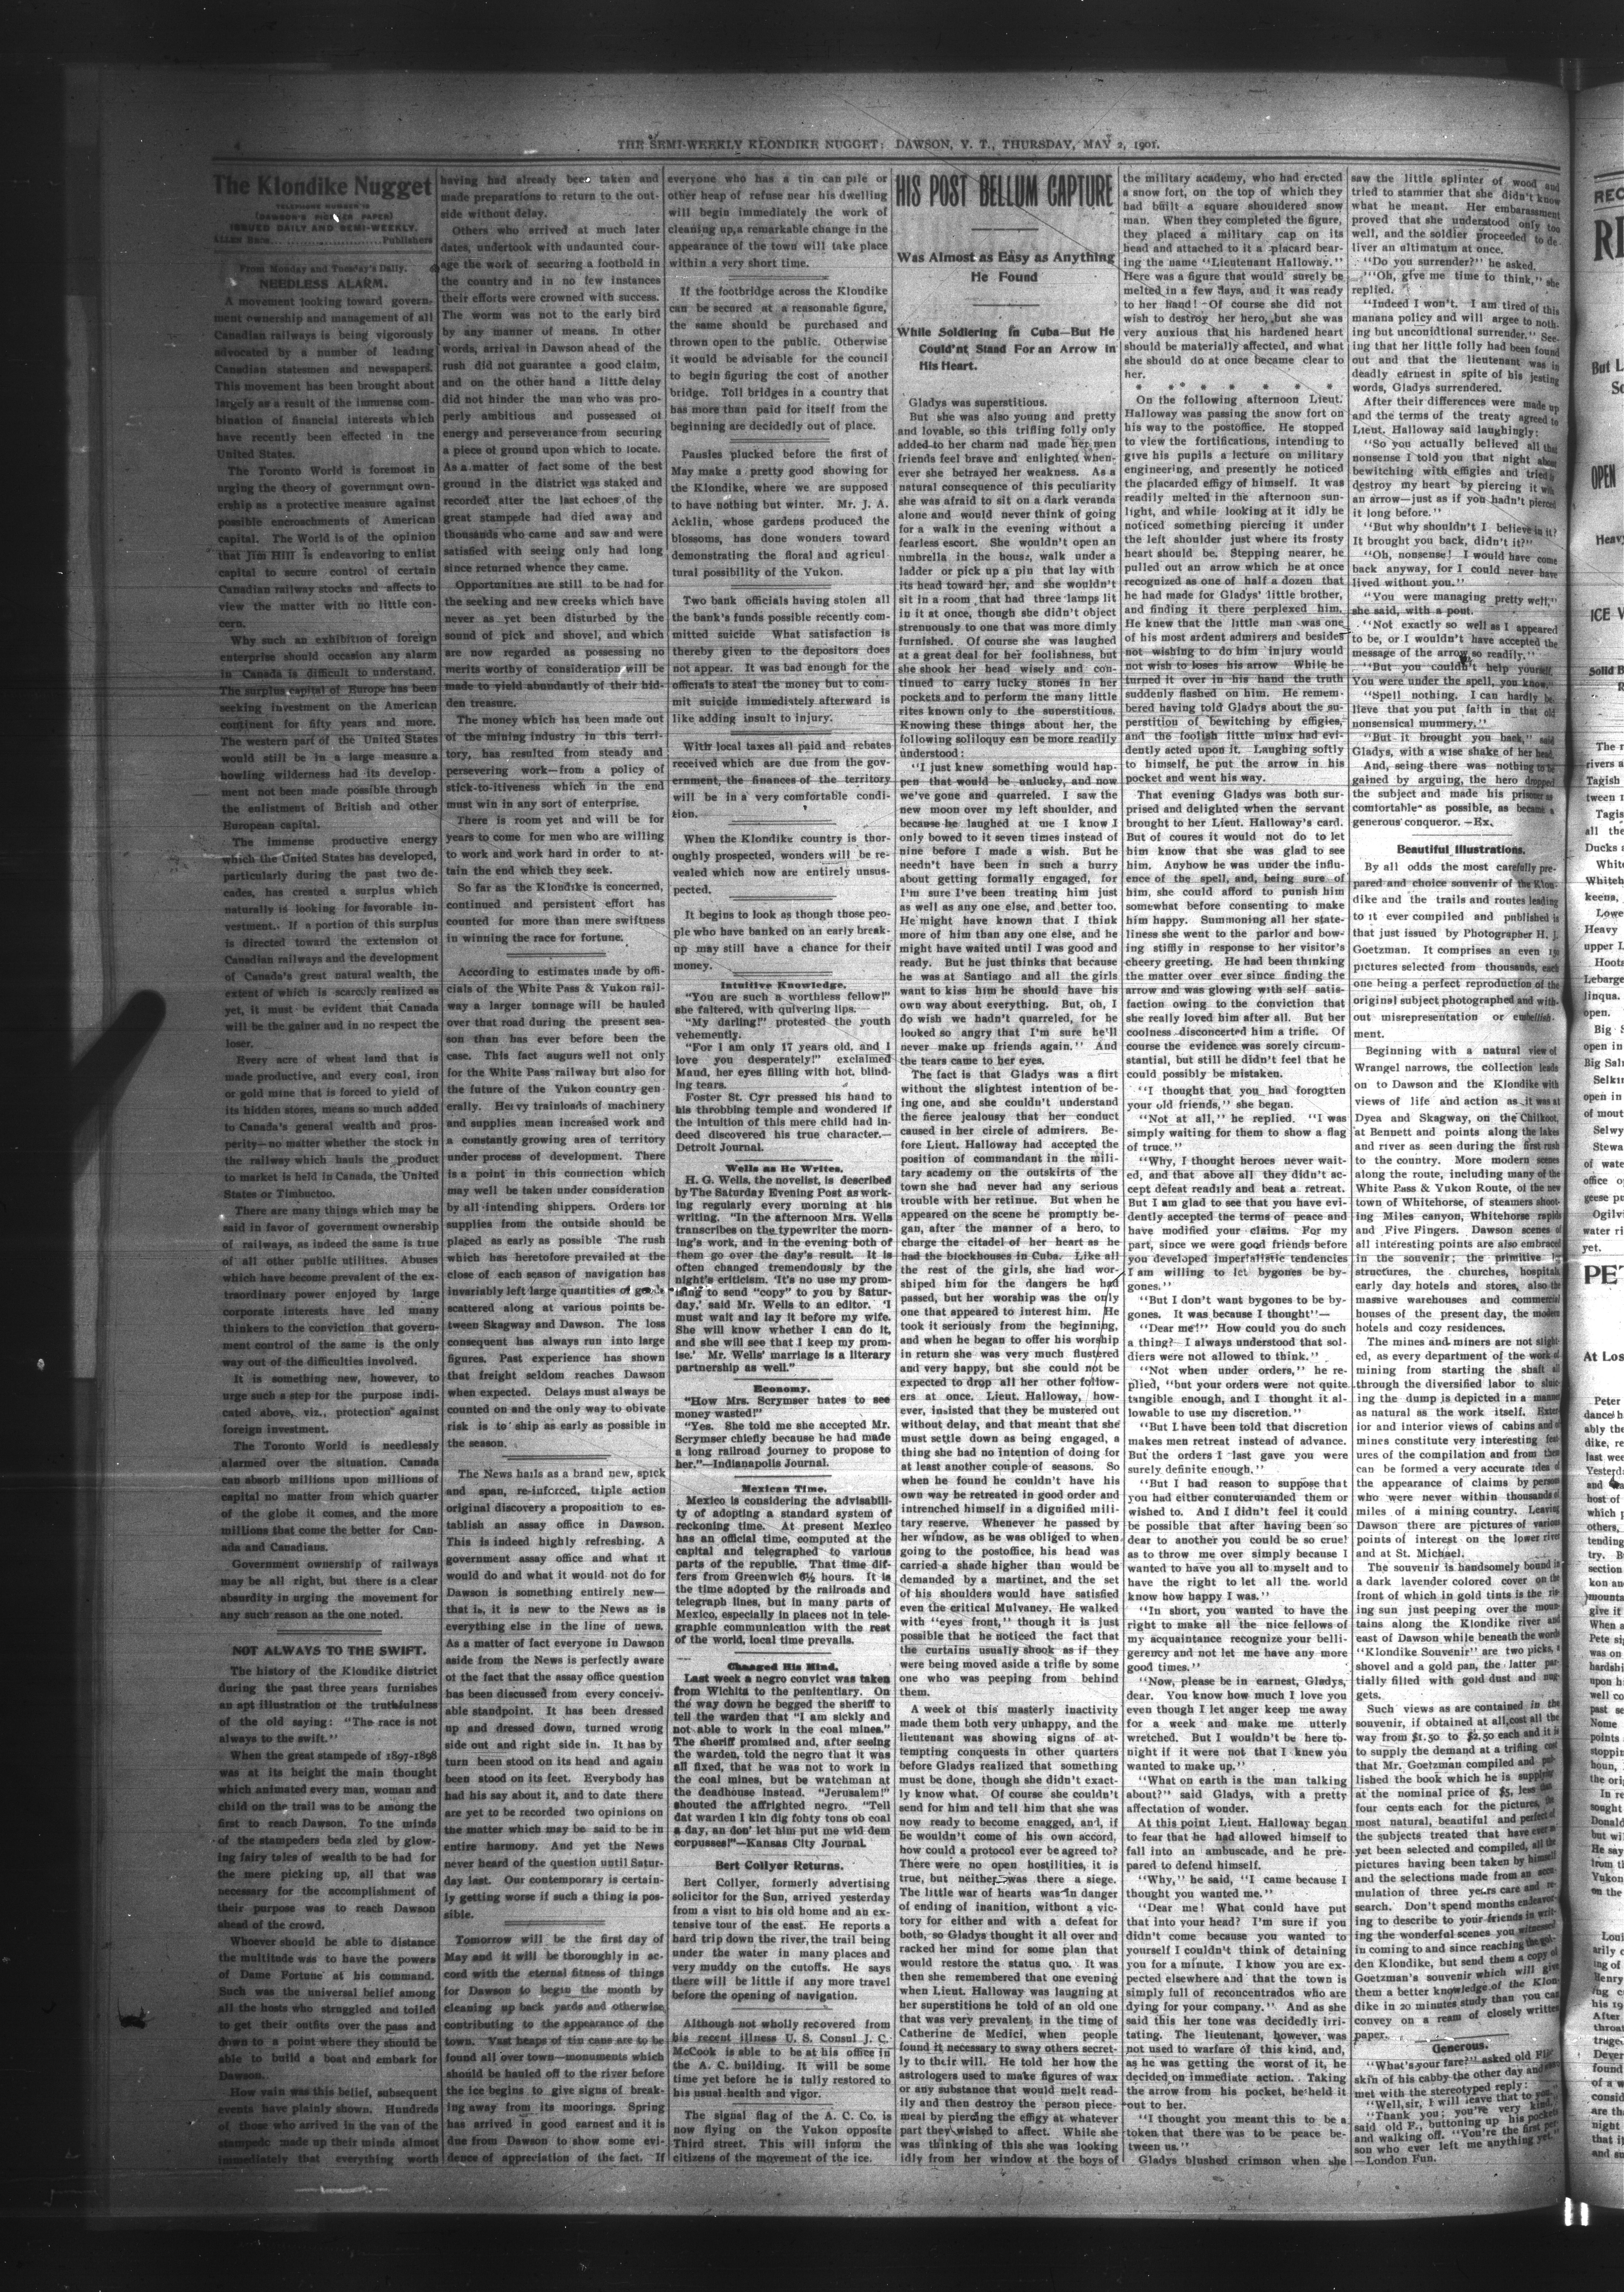 4
THE SEMI-WEEKLY KLONDIKE NUGGET: DAWSON, Y. T., THURSDAY, MAY 2, 1901.
The Klondike Nugget
TELEPHONE NUMBER 12
(DAWSON'S PIONEER PAPER)
ISSUED DAILY AND SEMI-WEEKLY.
ALLEN BROS. Publishers
From Monday and Tuesday's Daily.
NEEDLESS ALARM.
A movement looking toward govern-
ment ownership and management of all
Canadian railways is being vigorously
advocated by a number of leading
Canadian statesmen and newspapers.
This movement has been brought about
largely as a result of the immense com-
bination of financial interests which
have recently been effected in the
United States.
The Toronto World is foremost in
urging the theory of government own-
ership as a protective measure against
possible encroachments of American
capital. The World is of the opinion
that Jim Hill is endeavoring to enlist
capital to secure control of certain
Canadian railway stocks and affects to
view the matter with no little con-
cern.
Why such an exhibition of foreign
enterprise should occasion any alarm
in Canada is difficult to understand.
The surplus capital of Europe has been
seeking investment on the American
continent for fifty years and more.
The western part of the United States
would still be in a large measure a
howling wilderness had its develop-
ment not been made possible through
the enlistment of British and other
European capital.
The immense productive energy
which the United States has developed,
particularly during the past two de-
cades, has created a surplus which
naturally is looking for favorable in-
vestment. If a portion of this surplus
is directed toward the extension of
Canadian railways and the development
of Canada's great natural wealth, the
extent of which is scarcely realized as
yet, it must be evident that Canada
will be the gainer and in no respect the
loser.
Every acre of wheat land that is
made productive, and every coal, iron
or gold mine that is forced to yield of
its hidden stores, means so much added
to Canada's general wealth and pros-
perity—no matter whether the stock in
the railway which hauls the product
to market is held in Canada, the United
States or Timbuctoo.
There are many things which may be
said in favor of government ownership
of railways, as indeed the same is true
of all other public utilities. Abuses
which have become prevalent of the ex-
traordinary power enjoyed by large
corporate interests have led many
thinkers to the conviction that govern-
ment control of the same is the only
way out of the difficulties involved.
It is something new, however, to
urge such a step for the purpose indi-
cated above, viz., protection against
foreign investment.
The Toronto World is needlessly
alarmed over the situation. Canada
can absorb millions upon millions of
capital no matter from which quarter
of the globe it comes, and the more
millions that come the better for Can-
ada and Canadians.
Government ownership of railways
may be all right, but there is a clear
absurdity in urging the movement for
any such reason as the one noted.
NOT ALWAYS TO THE SWIFT.
The history of the Klondike district
during the past three years furnishes
an apt illustration of the truthfulness
of the old saying: "The race is not
always to the swift."
When the great stampede of 1897-1898
was at its height the main thought
which animated every man, woman and
child on the trail was to be among the
first to reach Dawson. To the minds
of the stampeders beda zled by glow-
ing fairy tales of wealth to be had for
the mere picking up, all that was
necessary for the accomplishment of
their purpose was to reach Dawson
ahead of the crowd.
Whoever should be able to distance
the multitude was to have the powers
of Dame Fortune at his command.
Such was the universal belief among
all the hosts who struggled and toiled
to get their outfits over the pass and
down to a point where they should be
able to build a boat and embark for
Dawson.
How vain was this belief, subsequent
events have plainly shown. Hundreds
of those who arrived in the van of the
stampede made up their minds almost
immediately that everything worth
having had already been taken and
made preparations to return to the out-
side without delay.
Others who arrived at much later
dates, undertook with undaunted cour-
age the work of securing a foothold in
the country and in no few instances
their efforts were crowned with success.
The worm was not to the early bird
by any manner of means. In other
words, arrival in Dawson ahead of the
rush did not guarantee a good claim,
and on the other hand a little delay
did not hinder the man who was pro-
perly ambitious and possessed of
energy and perseverance from securing
a piece of ground upon which to locate.
As a matter of fact some of the best
ground in the district was staked and
recorded after the last echoes of the
great stampede had died away and
thousands who came and saw and were
satisfied with seeing only had long
since returned whence they came.
Opportunities are still to be had for
the seeking and new creeks which have
never as yet been disturbed by the
sound of pick and shovel, and which
are now regarded as possessing no
merits worthy of consideration will be
made to yield abundantly of their hid-
den treasure.
The money which has been made out
of the mining industry in this terri-
tory, has resulted from steady and
persevering work—from a policy of
stick-to-itiveness which in the end
must win in any sort of enterprise.
There is room yet and will be for
years to come for men who are willing
to work and work hard in order to at-
tain the end which they seek.
So far as the Klondike is concerned,
continued and persistent effort has
counted for more than mere swiftness
in winning the race for fortune.
According to estimates made by offi-
cials of the White Pass & Yukon rail-
way a larger tonnage will be hauled
over that road during the present sea-
son than has ever before been the
case. This fact augurs well not only
for the White Pass railway but also for
the future of the Yukon country gen
erally. Heavy trainloads of machinery
and supplies mean increased work and
a constantly growing area of territory
under process of development. There
is a point in this connection which
may well be taken under consideration
by all intending shippers. Orders for
supplies from the outside should be
placed as early as possible The rush
which has heretofore prevailed at the
close of each season of navigation has
invariably left large quantities of goods
scattered along at various points be-
tween Skagway and Dawson. The loss
consequent has always run into large
figures. Past experience has shown
that freight seldom reaches Dawson
when expected. Delays must always be
counted on and the only way to obivate
risk is to ship as early as possible in
the season.
The News hails as a brand new, spick
and span, re-inforced, triple action
original discovery a proposition to es-
tablish an assay office in Dawson.
This is indeed highly refreshing. A
government assay office and what it
would do and what it would not do for
Dawson is something entirely new—
that is, it is new to the News as is
everything else in the line of news.
As a matter of fact everyone in Dawson
aside from the News is perfectly aware
of the fact that the assay office question
has been discussed from every conceiv-
able standpoint. It has been dressed
up and dressed down, turned wrong
side out and right side in. It has by
turn been stood on its head and again
been stood on its feet. Everybody has
had his say about it, and to date there
are yet to be recorded two opinions on
the matter which may be said to be in
entire harmony. And yet the News
never heard of the question until Satur-
day last. Our contemporary is certain-
ly getting worse if such a thing is pos-
sible.
Tomorrow will be the first day of
May and it will be thoroughly in ac-
cord with the eternal fitness of things
for Dawson to begin the month by
cleaning up back yards and otherwise
contributing to the appearance of the
town. Vast heaps of tin cans are to be
found all over town—monuments which
should be hauled off to the river before
the ice begins to give signs of break-
ing away from its moorings. Spring
has arrived in good earnest and it is
due from Dawson to show some evi-
dence of appreciation of the fact. If
everyone who has a tin can pile or
other heap of refuse near his dwelling
will begin immediately the work of
cleaning up, a remarkable change in the
appearance of the town will take place
within a very short time.
If the footbridge across the Klondike
can be secured at a reasonable figure,
the same should be purchased and
thrown open to the public. Otherwise
it would be advisable for the council
to begin figuring the cost of another
bridge. Toll bridges in a country that
has more than paid for itself from the
beginning are decidedly out of place.
Pansies plucked before the first of
May make a pretty good showing for
the Klondike, where we are supposed
to have nothing but winter. Mr. J. A.
Acklin, whose gardens produced the
blossoms, has done wonders toward
demonstrating the floral and agricul
tural possibility of the Yukon.
Two bank officials having stolen all
the bank's funds possible recently com-
mitted suicide What satisfaction is
thereby given to the depositors does
not appear. It was bad enough for the
officials to steal the money but to com-
mit suicide immediately afterward is
like adding insult to injury.
With local taxes all paid and rebates
received which are due from the gov-
ernment, the finances of the territory
will be in a very comfortable condi-
tion.
When the Klondike country is thor-
oughly prospected, wonders will be re-
vealed which now are entirely unsus-
pected.
It begins to look as though those peo-
ple who have banked on an early break-
up may still have a chance for their
money.
Intuitive Knowledge.
"You are such a worthless fellow!"
she faltered, with quivering lips.
"My darling!" protested the youth
vehemently.
"For I am only 17 years old, and I
love you desperately!" exclaimed
Maud, her eyes filling with hot, blind-
ing tears.
Foster St. Cyr pressed his hand to
his throbbing temple and wondered if
the intuition of this mere child had in-
deed discovered his true character.—
Detroit Journal.
Wells as He Writes.
H. G. Wells, the novelist, is described
by The Saturday Evening Post as work-
ing regularly every morning at his
writing. "In the afternoon Mrs. Wells
transcribes on the typewriter the morn-
ing's work, and in the evening both of
them go over the day's result. It is
often changed tremendously by the
night's criticism. 'It's no use my prom-
ising to send "copy" to you by Satur-
day,' said Mr. Wells to an editor. 'I
must wait and lay it before my wife.
She will know whether I can do it,
and she will see that I keep my prom-
ise.' Mr. Wells' marriage is a literary
partnership as well."
Economy.
"How Mrs. Scrymser hates to see
money wasted!"
"Yes. She told me she accepted Mr.
Scrymser chiefly because he had made
a long railroad journey to propose to
her."—Indianapolis Journal.
Mexican Time.
Mexico is considering the advisabili-
ty of adopting a standard system of
reckoning time. At present Mexico
has an official time, computed at the
capital and telegraphed to various
parts of the republic. That time dif-
fers from Greenwich 6½ hours. It is
the time adopted by the railroads and
telegraph lines, but in many parts of
Mexico, especially in places not in tele-
graphic communication with the rest
of the world, local time prevails.
Changed His Mind.
Last week a negro convict was taken
from Wichita to the penitentiary. On
the way down he begged the sheriff to
tell the warden that "I am sickly and
not able to work in the coal mines."
The sheriff promised and, after seeing
the warden, told the negro that it was
all fixed, that he was not to work in
the coal mines, but be watchman at
the deadhouse instead. "Jerusalem!"
shouted the affrighted negro. "Tell
dat warden I kin dig fohty tons ob coal
a day, an don' let him put me wid dem
corpusses!"—Kansas City Journal.
Bert Collyer Returns.
Bert Collyer, formerly advertising
solicitor for the Sun, arrived yesterday
from a visit to his old home and an ex-
tensive tour of the east. He reports a
hard trip down the river, the trail being
under the water in many places and
very muddy on the cutoffs. He says
there will be little if any more travel
before the opening of navigation.
Although not wholly recovered from
his recent illness U. S. Consul J. C.
McCook is able to be at his office in
the A. C. building. It will be some
time yet before he is fully restored to
his usual health and vigor.
The signal flag of the A. C. Co. is
now flying on the Yukon opposite
Third street. This will inform the
citizens of the movement of the ice.
HIS POST BELLUM CAPTURE
Was Almost as Easy as Anything
He Found
While Soldiering in Cuba—But He
Could'nt Stand For an Arrow in
His Heart.
Gladys was superstitious.
But she was also young and pretty
and lovable, so this trifling folly only
added to her charm nad made her men
friends feel brave and enlighted when-
ever she betrayed her weakness. As a
natural consequence of this peculiarity
she was afraid to sit on a dark veranda
alone and would never think of going
for a walk in the evening without a
fearless escort. She wouldn't open an
umbrella in the house, walk under a
ladder or pick up a pin that lay with
its head toward her, and she wouldn't
sit in a room that had three lamps lit
in it at once, though she didn't object
strenuously to one that was more dimly
furnished. Of course she was laughed
at a great deal for her foolishness, but
she shook her head wisely and con-
tinued to carry lucky stones in her
pockets and to perform the many little
rites known only to the superstitious.
Knowing these things about her, the
following soliloquy can be more readily
understood:
"I just knew something would hap-
pen that would be unlucky, and now
we've gone and quarreled. I saw the
new moon over my left shoulder, and
because he laughed at me I know I
only bowed to it seven times instead of
nine before I made a wish. But he
needn't have been in such a hurry
about getting formally engaged, for
I'm sure I've been treating him just
as well as any one else, and better too.
He might have known that I think
more of him than any one else, and he
might have waited until I was good and
ready. But he just thinks that because
he was at Santiago and all the girls
want to kiss him he should have his
own way about everything. But, oh, I
do wish we hadn't quarreled, for he
looked so angry that I'm sure he'll
never make up friends again." And
the tears came to her eyes.
The fact is that Gladys was a flirt
without the slightest intention of be-
ing one, and she couldn't understand
the fierce jealousy that her conduct
caused in her circle of admirers. Be-
fore Lieut. Halloway had accepted the
position of commandant in the mili-
tary academy on the outskirts of the
town she had never had any serious
trouble with her retinue. But when he
appeared on the scene he promptly be-
gan, after the manner of a hero, to
charge the citadel of her heart as he
had the blockhouses in Cuba. Like all
the rest of the girls, she had wor-
shiped him for the dangers he had
passed, but her worship was the only
one that appeared to interest him. He
took it seriously from the beginning,
and when he began to offer his worship
in return she was very much flustered
and very happy, but she could not be
expected to drop all her other follow-
ers at once. Lieut. Halloway, how-
ever, insisted that they be mustered out
without delay, and that meant that she
must settle down as being engaged, a
thing she had no intention of doing for
at least another couple of seasons. So
when he found he couldn't have his
own way he retreated in good order and
intrenched himself in a dignified mili-
tary reserve. Whenever he passed by
her window, as he was obliged to when
going to the postoffice, his head was
carried a shade higher than would be
demanded by a martinet, and the set
of his shoulders would have satisfied
even the critical Mulvaney. He walked
with "eyes front," though it is just
possible that he noticed the fact that
the curtains usually shook as if they
were being moved aside a trifle by some
one who was peeping from behind
them.
A week of this masterly inactivity
made them both very unhappy, and the
lieutenant was showing signs of at-
tempting conquests in other quarters
before Gladys realized that something
must be done, though she didn't exact-
ly know what. Of course she couldn't
send for him and tell him that she was
now ready to become enagged, and, if
he wouldn't come of his own accord,
how could a protocol ever be agreed to?
There were no open hostilities, it is
true, but neither was there a siege.
The little war of hearts was in danger
of ending of inanition, without a vic-
tory for either and with a defeat for
both, so Gladys thought it all over and
racked her mind for some plan that
would restore the status quo. It was
then she remembered that one evening
when Lieut. Halloway was laughing at
her superstitions he told of an old one
that was very prevalent in the time of
Catherine de Medici, when people
found it necessary to sway others secret-
ly to their will. He told her how the
astrologers used to make figures of wax
or any substance that would melt read-
ily and then destroy the person piece-
meal by piercing the effigy at whatever
part they wished to affect. While she
was thinking of this she was looking
idly from her window at the boys of
the military academy, who had erected
a snow fort, on the top of which they
had built a square shouldered snow
man. When they completed the figure,
they placed a military cap on its
head and attached to it a placard bear-
ing the name "Lieutenant Halloway."
Here was a figure that would surely be
melted in a few days, and it was ready
to her hand! Of course she did not
wish to destroy her hero, but she was
very anxious that his hardened heart
should be materially affected, and what
she should do at once became clear to
her.
* * * * * * * *
On the following afternoon Lieut.
Halloway was passing the snow fort on
his way to the postoffice. He stopped
to view the fortifications, intending to
give his pupils a lecture on military
engineering, and presently he noticed
the placarded effigy of himself. It was
readily melted in the afternoon sun-
light, and while looking at it idly he
noticed something piercing it under
the left shoulder just where its frosty
heart should be. Stepping nearer, he
pulled out an arrow which he at once
recognized as one of half a dozen that
he had made for Gladys' little brother,
and finding it there perplexed him.
He knew that the little man was one
of his most ardent admirers and besides
not wishing to do him injury would
not wish to loses his arrow While he
turned it over in his hand the truth
suddenly flashed on him. He remem-
bered having told Gladys about the su-
perstition of bewitching by effigies,
and the foolish little minx had evi-
dently acted upon it. Laughing softly
to himself, he put the arrow in his
pocket and went his way.
That evening Gladys was both sur-
prised and delighted when the servant
brought to her Lieut. Halloway's card.
But of coures it would not do to let
him know that she was glad to see
him. Anyhow he was under the influ-
ence of the spell, and, being sure of
him, she could afford to punish him
somewhat before consenting to make
him happy. Summoning all her state-
liness she went to the parlor and bow-
ing stiffly in response to her visitor's
cheery greeting. He had been thinking
the matter over ever since finding the
arrow and was glowing with self satis-
faction owing to the conviction that
she really loved him after all. But her
coolness disconcerted him a trifle. Of
course the evidence was sorely circum-
stantial, but still he didn't feel that he
could possibly be mistaken.
"I thought that you had forogtten
your old friends," she began.
"Not at all," he replied. "I was
simply waiting for them to show a flag
of truce."
"Why, I thought heroes never wait-
ed, and that above all they didn't ac-
cept defeat readily and beat a retreat.
But I am glad to see that you have evi-
dently accepted the terms of peace and
have modified your claims. For my
part, since we were good friends before
you developed imperialistic tendencies
I am willing to let bygones be by-
gones."
"But I don't want bygones to be by-
gones. It was because I thought"—
"Dear me!" How could you do such
a thing? I always understood that sol-
diers were not allowed to think."
"Not when under orders," he re-
plied, "but your orders were not quite
tangible enough, and I thought it al-
lowable to use my discretion."
"But I have been told that discretion
makes men retreat instead of advance.
But the orders I last gave you were
surely definite enough."
"But I had reason to suppose that
you had either conutermanded them or
wished to. And I didn't feel it could
be possible that after having been so
dear to another you could be so crue!
as to throw me over simply because I
wanted to have you all to myself and to
have the right to let all the world
know how happy I was."
"In short, you wanted to have the
right to make all the nice fellows of
my acquaintance recognize your belli-
gerency and not let me have any more
good times."
"Now, please be in earnest, Gladys,
dear. You know how much I love you
even though I let anger keep me away
for a week and make me utterly
wretched. But I wouldn't be here to-
night if it were not that I knew you
wanted to make up."
"What on earth is the man talking
about?" said Gladys, with a pretty
affectation of wonder.
At this point Lieut. Halloway began
to fear that he had allowed himself to
fall into an ambuscade, and he pre-
pared to defend himself.
"Why," he said, "I came because I
thought you wanted me."
"Dear me! What could have put
that into your head? I'm sure if you
didn't come because you wanted to
yourself I couldn't think of detaining
you for a minute. I know you are ex-
pected elsewhere and that the town is
simply full of reconcentrados who are
dying for your company." And as she
said this her tone was decidedly irri-
tating. The lieutenant, however, was
not used to warfare of this kind, and,
as he was getting the worst of it, he
decided on immediate action. Taking
the arrow from his pocket, he held it
out to her.
"I thought you meant this to be a
token that there was to be peace be-
tween us."
Gladys blushed crimson when she
saw the little splinter of wood and
tried to stammer that she didn't know
what he meant. Her embarassment
proved that she understood only too
well, and the soldier proceeded to de-
liver an ultimatum at once.
"Do you surrender?" he asked.
"'Oh, give me time to think," she
replied.
"Indeed I won't. I am tired of this
manana policy and will argee to noth-
ing but unconidtional surrender." See-
ing that her little folly had been found
out and that the lieutenant was in
deadly earnest in spite of his jesting
words, Gladys surrendered.
After their differences were made up
and the terms of the treaty agreed to
Lieut. Halloway said laughingly:
"So you actually believed all that
nonsense I told you that night about
bewitching with effigies and tried to
destroy my heart by piercing it with
an arrow—just as if you hadn't pierced
it long before."
"But why shouldn't I believe in it?
It brought you back, didn't it?"
"Oh, nonsense! I would have come
back anyway, for I could never have
lived without you."
"You were managing pretty well,"
she said, with a pout.
"Not exactly so well as I appeared
to be, or I wouldn't have accepted the
message of the arrow so readily."
"But you couldn't help yourself.
You were under the spell, you know."
"Spell nothing. I can hardly be-
lieve that you put faith in that old
nonsensical mummery."
"But it brought you back," said
Gladys, with a wise shake of her head.
And, seing there was nothing to be
gained by arguing, the hero dropped
the subject and made his prisoner as
comfortable as possible, as became a
generous conqueror.—Ex.
Beautiful Illustrations.
By all odds the most carefully pre-
pared and choice souvenir of the Klon-
dike and the trails and routes leading
to it ever compiled and published is
that just issued by Photographer H. J.
Goetzman. It comprises an even 150
pictures selected from thousands, each
one being a perfect reproduction of the
original subject photographed and with-
out misrepresentation or embellish-
ment.
Beginning with a natural view of
Wrangel narrows, the collection leads
on to Dawson and the Klondike with
views of life and action as it was at
Dyea and Skagway, on the Chilkoot,
at Bennett and points along the lakes
and river as seen during the first rush
to the country. More modern scenes
along the route, including many of the
White Pass & Yukon Route, of the new
town of Whitehorse, of steamers shoot-
ing Miles canyon, Whitehorse rapids
and Five Fingers. Dawson scenes of
all interesting points are also embraced
in the souvenir; the primitive
structures, the churches, hospitals
early day hotels and stores, also the
massive warehouses and commercial
houses of the present day, the modern
hotels and cozy residences.
The mines and miners are not slight-
ed, as every department of the work of
mining from starting the shaft all
through the diversified labor to sluic-
ing the dump is depicted in a manner
as natural as the work itself. Exter-
ior and interior views of cabins and of
mines constitute very interesting feat-
ures of the compilation and from them
can be formed a very accurate idea of
the appearance of claims by persons
who were never within thousands of
miles of a mining country. Leaving
Dawson there are pictures of various
points of interest on the lower river
and at St. Michael.
The souvenir is handsomely bound in
a dark lavender colored cover on the
front of which in gold tints is the ris-
ing sun just peeping over the moun-
tains along the Klondike river and
east of Dawson while beneath the words
"Klondike Souvenir" are two picks, a
shovel and a gold pan, the latter par-
tially filled with gold dust and nug-
gets.
Such views as are contained in the
souvenir, if obtained at all, cost all the
way from $1.50 to $2.50 each and it is
to supply the demand at a trifling cost
that Mr. Goetzman compiled and pub-
lished the book which he is supplying
at the nominal price of $5, less than
four cents each for the pictures, the
most natural, beautiful and perfect of
the subjects treated that have ever
yet been selected and compiled, all the
pictures having been taken by himself
and the selections made from an accu-
mulation of three years care and re-
search. Don't spend months endeavor-
ing to describe to your friends in writ-
ing the wonderful scenes you witnessed
in coming to and since reaching the gol-
den Klondike, but send them a copy of
Goetzman's souvenir which will give
them a better knowledge of the Klon-
dike in 20 minutes study than you can
convey on a ream of closely written
paper.
Generous.
"What's your fare?" asked old
skin of his cabby the other day and
met with the stereotyped reply:
"Well, sir, I will leave that to you."
"Thank you; you're very kind,"
said old F., buttoning up his pockets
and walking off. "You're the first per-
son who ever left me anything yet."
—London Fun.